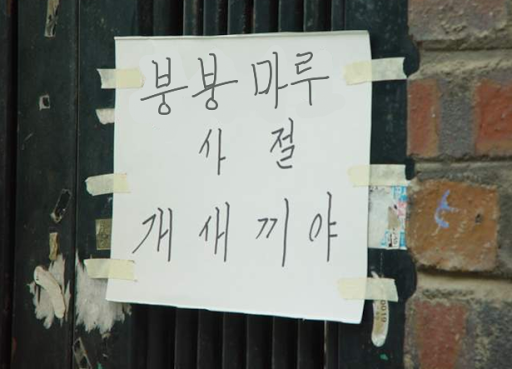 붕붕 마루
사 절
개 새 끼 야